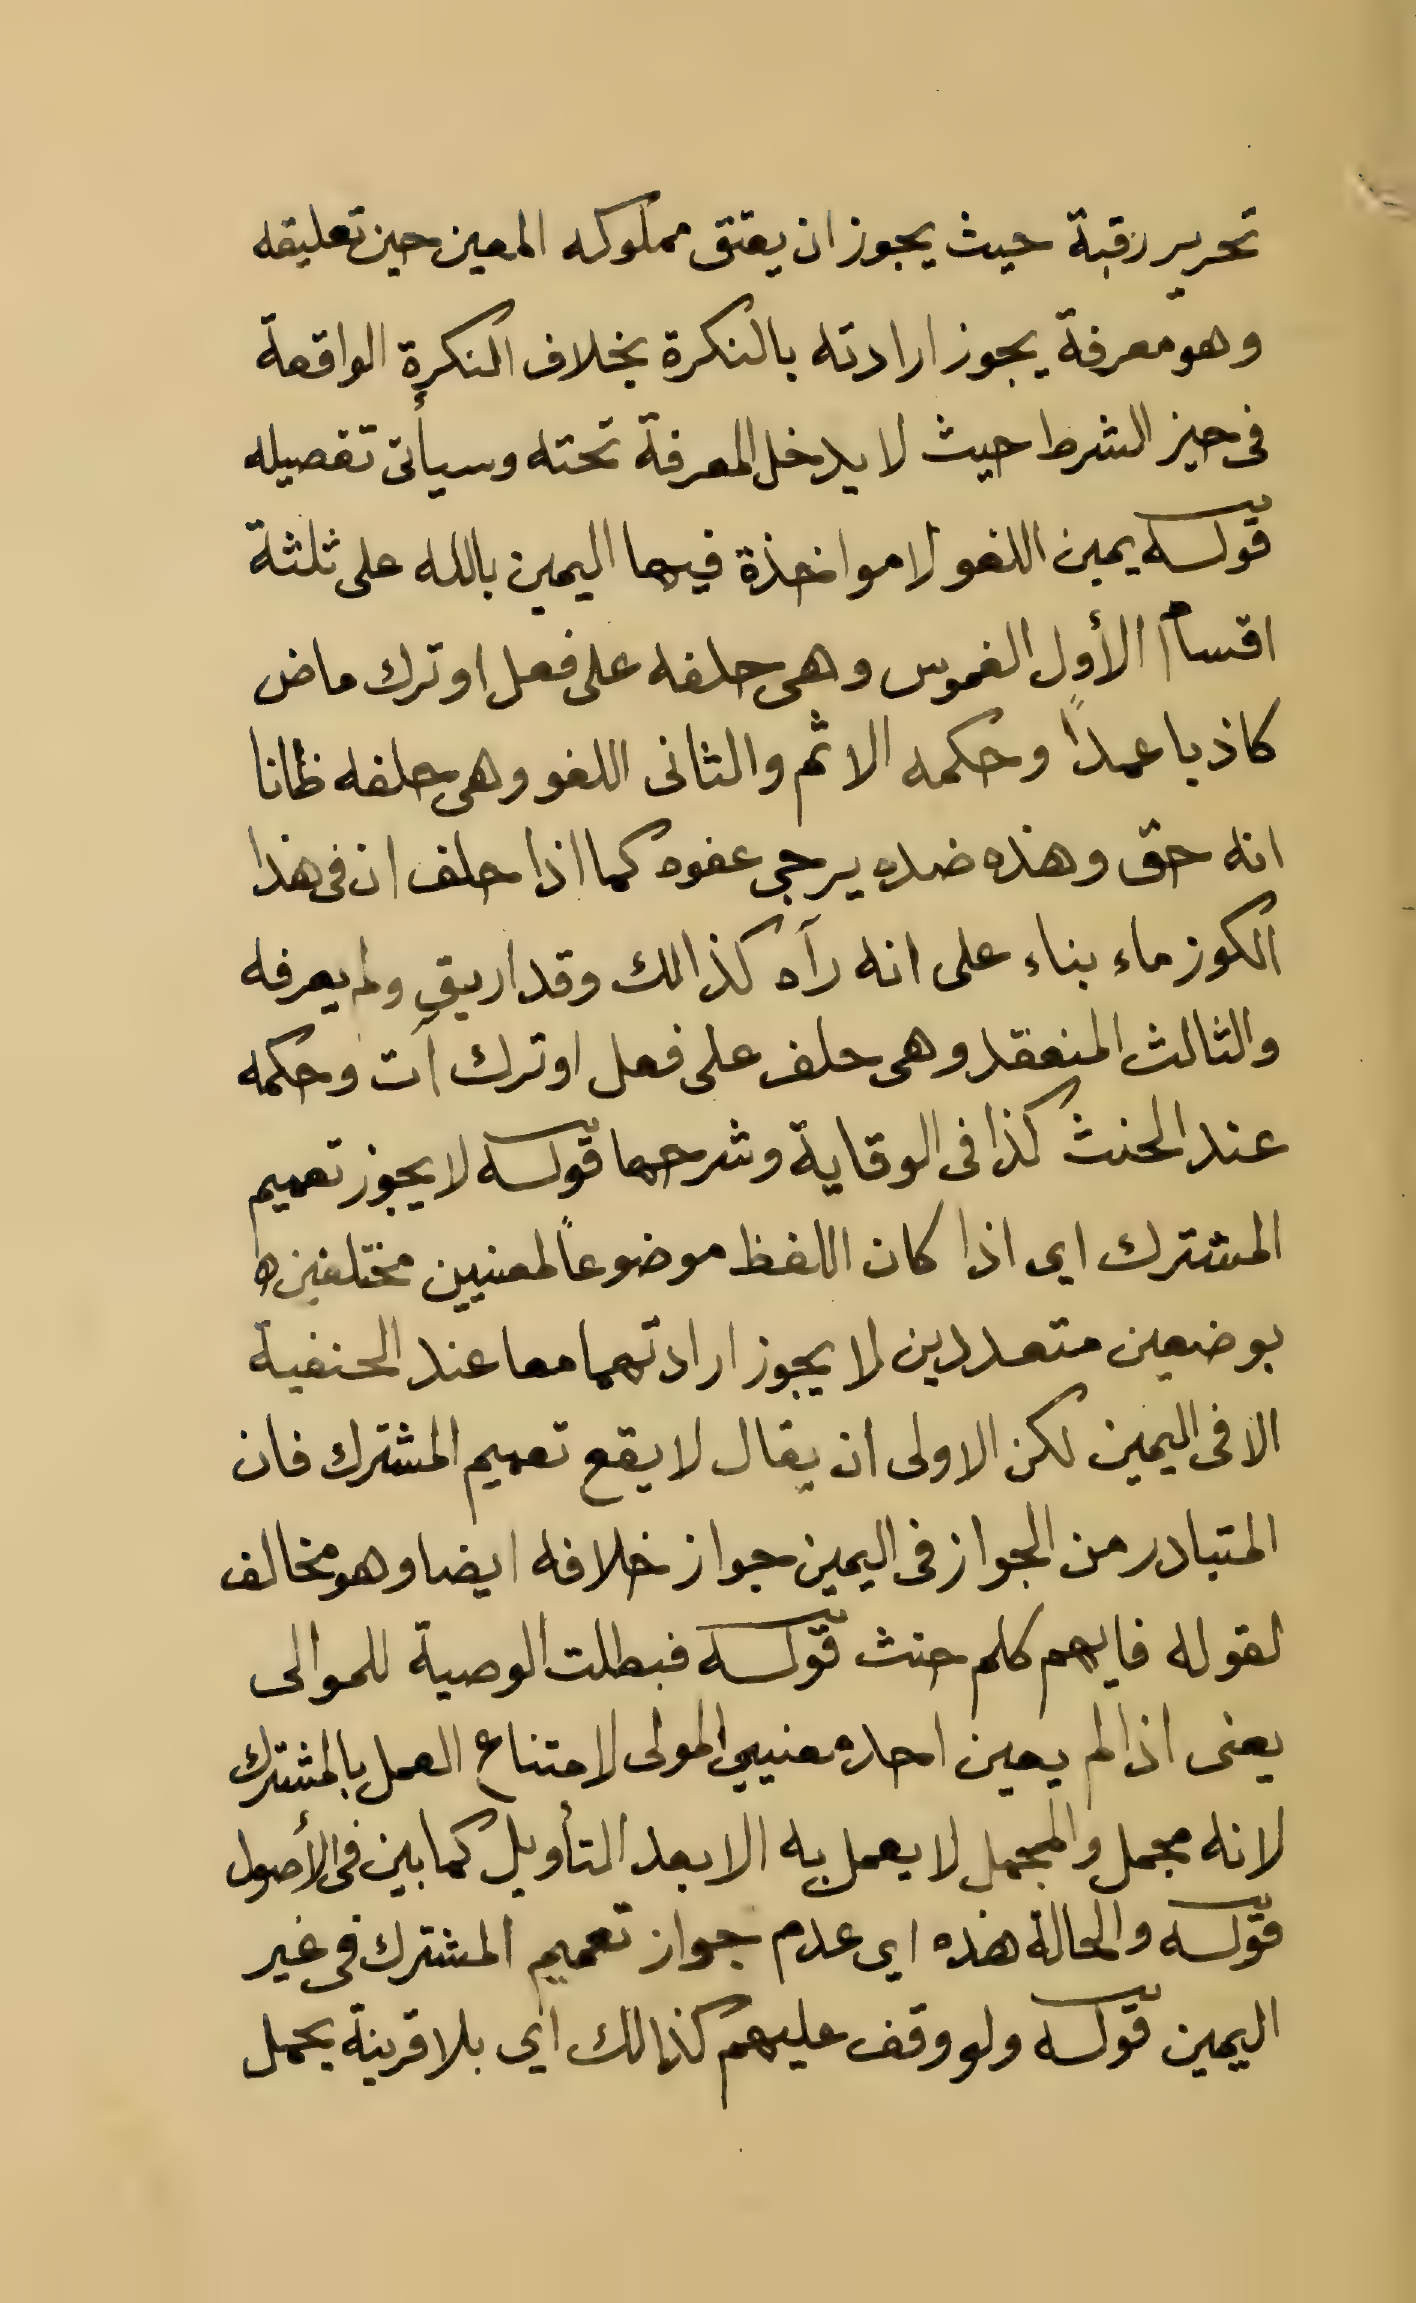 تحرير رقبة حيث يجوز ان يعتق مملوكه المعين حين تعليقه
وهو معرفة يجوز ارادته بالنكرة بخلاف النكرة الواقعة
فى حيز الشرط حيث لا يدخل المعرفة تحته وسيأتى تفصيله
قوله يمين اللغو لا مواخذة فيها اليمين بالله على ثلثة
اقسام الأول الغموس وهى حلفه على فعل او ترك ماض
كاذبا عمداً وحكمه الاثم والثانى اللغو وهى حلفه ظانا
انه حق وهذه ضده يرجى عفوه كما اذا حلف ان فى هذا
الكوز ماء بناء على انه رآه كذالك وقد اريق ولم يعرفه
والثالث المنعقد وهى حلف على فعل او ترك آت وحكمه
عند الحنث كذا فى الوقاية وشرحها قوله لا يجوز تعميم
المشترك اى اذا كان اللفظ موضوعاً لمعنيين مختلفين
بوضعين متعددين لا يجوز ارادتهما معا عند الحنفية
الا فى اليمين لكن الاولى ان يقال لا يقع تعميم المشترك فان
المتبادر من الجواز فى اليمين جواز خلافه ايضا وهو مخالف
لقوله فايهم كلم حنث قوله فبطلت الوصية للموالى
يعنى اذا لم يعين احد معنيي المولى لامتناع العمل بالمشترك
لانه مجمل والمجمل لا يعمل به الا بعد التأويل كما بين فى الأصول
قوله والحالة هذه اى عدم جواز تعميم المشترك فى غير
اليمين قوله ولو وقف عليهم كذالك اى بلا قرينة يحمل